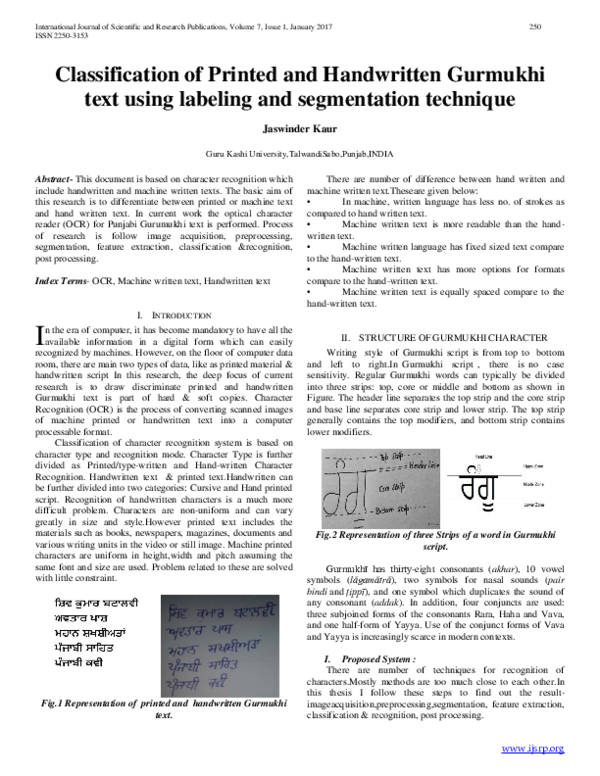 International Journal of Scientific and Research Publications, Volume 7, Issue 1, January 2017
250
ISSN 2250-3153
Classification of Printed and Handwritten Gurmukhi
text using labeling and segmentation technique
Jaswinder Kaur
Guru Kashi University,TalwandiSabo,Punjab,INDIA
Abstract- This document is based on character recognition which
include handwritten and machine written texts. The basic aim of
this research is to differentiate between printed or machine text
and hand written text. In current work the optical character
reader (OCR) for Punjabi Gurumukhi text is performed. Process
of research is follow image acquisition, preprocessing,
segmentation, feature extraction, classification &recognition,
post processing.
Index Terms- OCR, Machine written text, Handwritten text
I. INTRODUCTION
In the era of computer, it has become mandatory to have all the
available information in a digital form which can easily
recognized by machines. However, on the floor of computer data
room, there are main two types of data, like as printed material &
handwritten script In this research, the deep focus of current
research is to draw discriminate printed and handwritten
Gurmukhi text is part of hard & soft copies. Character
Recognition (OCR) is the process of converting scanned images
of machine printed or handwritten text into a computer
processable format.
Classification of character recognition system is based on
character type and recognition mode. Character Type is further
divided as Printed/type-written and Hand-written Character
Recognition. Handwritten text & printed text.Handwritten can
be further divided into two categories: Cursive and Hand printed
script. Recognition of handwritten characters is a much more
difficult problem. Characters are non-uniform and can vary
greatly in size and style.However printed text includes the
materials such as books, newspapers, magazines, documents and
various writing units in the video or still image. Machine printed
characters are uniform in height,width and pitch assuming the
same font and size are used. Problem related to these are solved
with little constraint.
ਸ਼ਿਵ ਕੁਮਾਰ ਬਟਾਲਵੀ
ਅਵਤਾਰ ਪਾਸ਼
ਮਹਾਨ ਸ਼ਖਸ਼ੀਅਤਾਂ
ਪੰਜਾਬੀ ਸਾਹਿਤ
ਪੰਜਾਬੀ ਕਵੀ
ਸ਼ਿਵ ਕੁਮਾਰ ਬਟਾਲਵੀ
ਅਵਤਾਰ ਪਾਸ਼
ਮਹਾਨ ਸ਼ਖਸ਼ੀਅਤਾਂ
ਪੰਜਾਬੀ ਸਾਹਿਤ
ਪੰਜਾਬੀ ਕਵੀ
Fig.1 Representation of printed and handwritten Gurmukhi
text.
There are number of difference between hand written and
machine written text.Theseare given below:
• In machine, written language has less no. of strokes as
compared to hand written text.
• Machine written text is more readable than the hand-
written text.
• Machine written language has fixed sized text compare
to the hand-written text.
• Machine written text has more options for formats
compare to the hand-written text.
• Machine written text is equally spaced compare to the
hand-written text.
II. STRUCTURE OF GURMUKHI CHARACTER
Writing style of Gurmukhi script is from top to bottom
and left to right.In Gurmukhi script , there is no case
sensitivity. Regular Gurmukhi words can typically be divided
into three strips: top, core or middle and bottom as shown in
Figure. The header line separates the top strip and the core strip
and base line separates core strip and lower strip. The top strip
generally contains the top modifiers, and bottom strip contains
lower modifiers.
Top Strip
Header line
Core Strip
Bottom Strip
Head Line
Upper Zone
Middle Zone
Lower Zone
Fig.2 Representation of three Strips of a word in Gurmukhi
script.
Gurmukhī has thirty-eight consonants (akhar), 10 vowel
symbols (lāgamātrā), two symbols for nasal sounds (pair
bindī and ṭippī), and one symbol which duplicates the sound of
any consonant (addak). In addition, four conjuncts are used:
three subjoined forms of the consonants Rara, Haha and Vava,
and one half-form of Yayya. Use of the conjunct forms of Vava
and Yayya is increasingly scarce in modern contexts.
I. Proposed System :
There are number of techniques for recognition of
characters.Mostly methods are too much close to each other.In
this thesis I follow these steps to find out the result-
imageacquisition,preprocessing,segmentation, feature extraction,
classification & recognition, post processing.
www.ijsrp.org